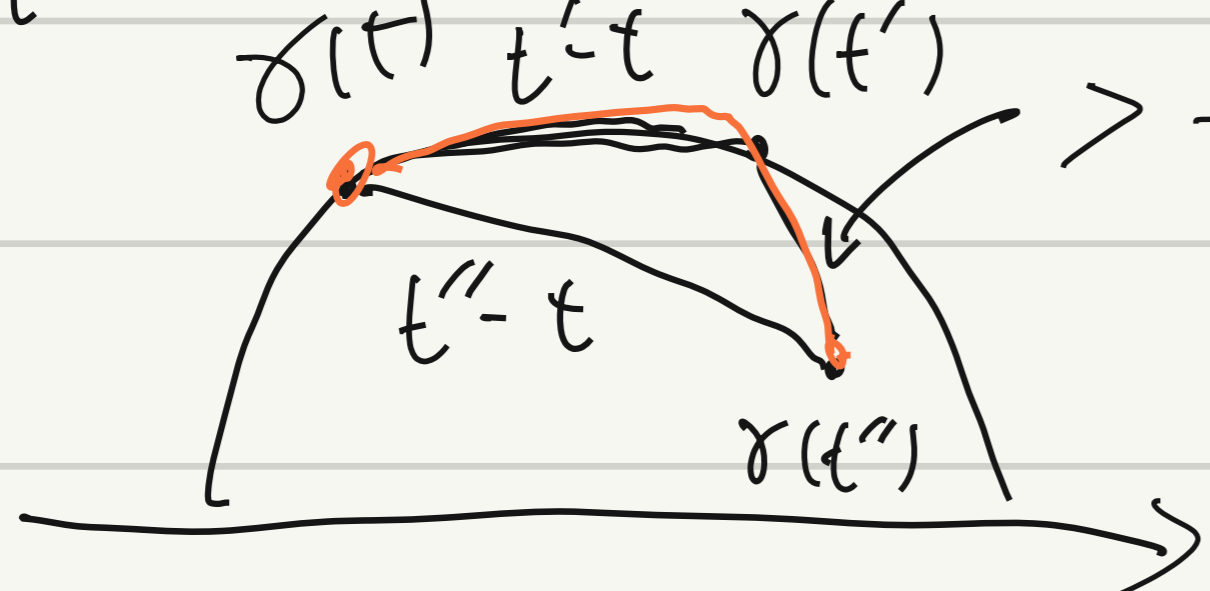 γ(t) t'-t γ(t') >
t''-t
γ(t'')